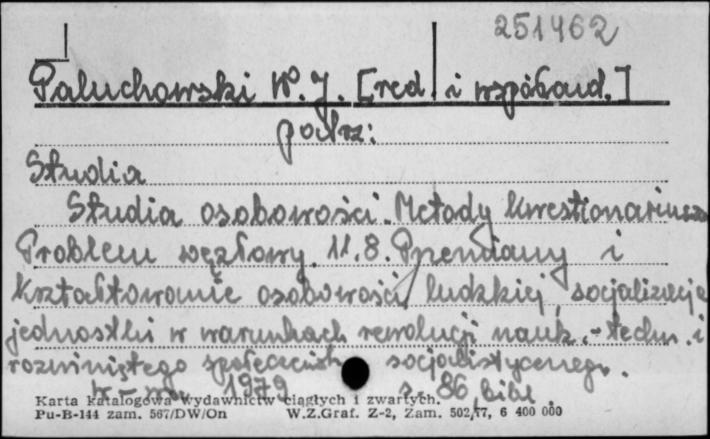 251462
Paluchowski W. J. [red i współaud.]
patrz:
Studia
Studia osobowości. Metody kwestionariusz
Problem węzłowy 11.8. Przemiany i
kształtowanie osobowości ludzkiej, socjalizacja
jednostki w warunkach rewolucji nauk.-techn. i
rozwiniętego społeczeństw socjalistycznego.
1979 s. 86, bibl.
Karta katalogowa wydawnictw ciągłych i zwartych.
Pu-B-144 zam. 567/DW/On W.Z.Graf. Z-2, Zam. 502/77, 6 400 000